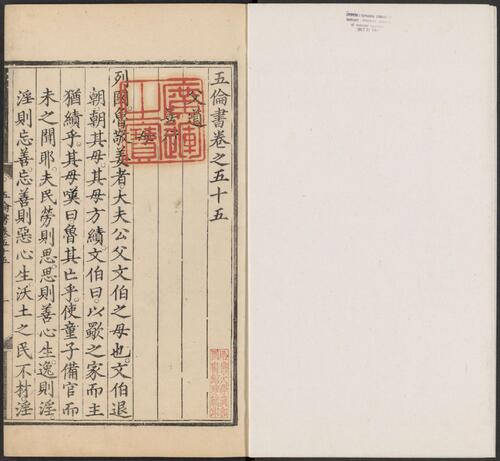 五倫書卷之五十五
父道
善行
母
列國魯敬姜者大夫公父文伯之母也文伯退
朝朝其母其母方績文伯曰以歜之家而主
猶績乎其母嘆曰魯其亡乎使童子備官而
未之聞耶夫民勞則思思則善心生逸則淫
淫則忘善忘善則惡心生沃土之民不材淫
五倫書卷五十五
一